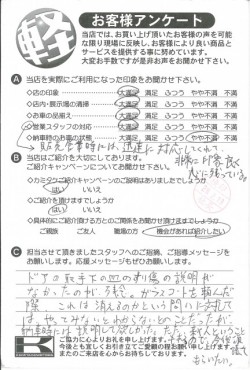 軽
お客様アンケート
当店では、お買い上げ頂いたお客様の声を可能
な限り現場に反映し、お客様により良い商品と
サービスを提供する事に努めています。
大変お手数ですが是非お声をお聞かせ下さい。
A 当店を実際にご利用になった印象をお聞かせ下さい。
◇店の印象 大満足 満足 ふつう やや不満 不満
◇店内・展示場の清掃 大満足 満足 ふつう やや不満 不満
◇お車の品揃え 大満足 満足 ふつう やや不満 不満
◇営業スタッフの対応 大満足 満足 ふつう やや不満 不満
◇納車時のお車の状態 大満足 満足 ふつう やや不満 不満
対応してくれて
非常に
B 当店はご紹介を大切にしております。
ご紹介キャンペーンについてお聞かせ下さい。
◇カミタツ紹介キャンペーンのご説明はありましたでしょうか
はい いいえ
◇ご紹介を頂けますでしょうか
はい いいえ
◇具体的にご紹介頂ける方との関係をお聞かせ頂けますでしょうか
ご親族 ご友人 職場の方 機会があれば紹介したい
C 担当させて頂きましたスタッフへのご指摘、ご指導メッセージを
お願いします。応援メッセージもぜひお願いします。
ドアの取手下の凹のすり傷の説明が
なかったのが
際 これは消えるのかという問いに対して
は、やってみないとわからないとのことだったが
納車時には説明して欲しかった。
ご協力に心よりお礼を申し上げます。
今後とも宜しくお引き立てご愛顧の程お願い申し上げます。
またのご来店を心からお待ちしております。
もらいたい。
K